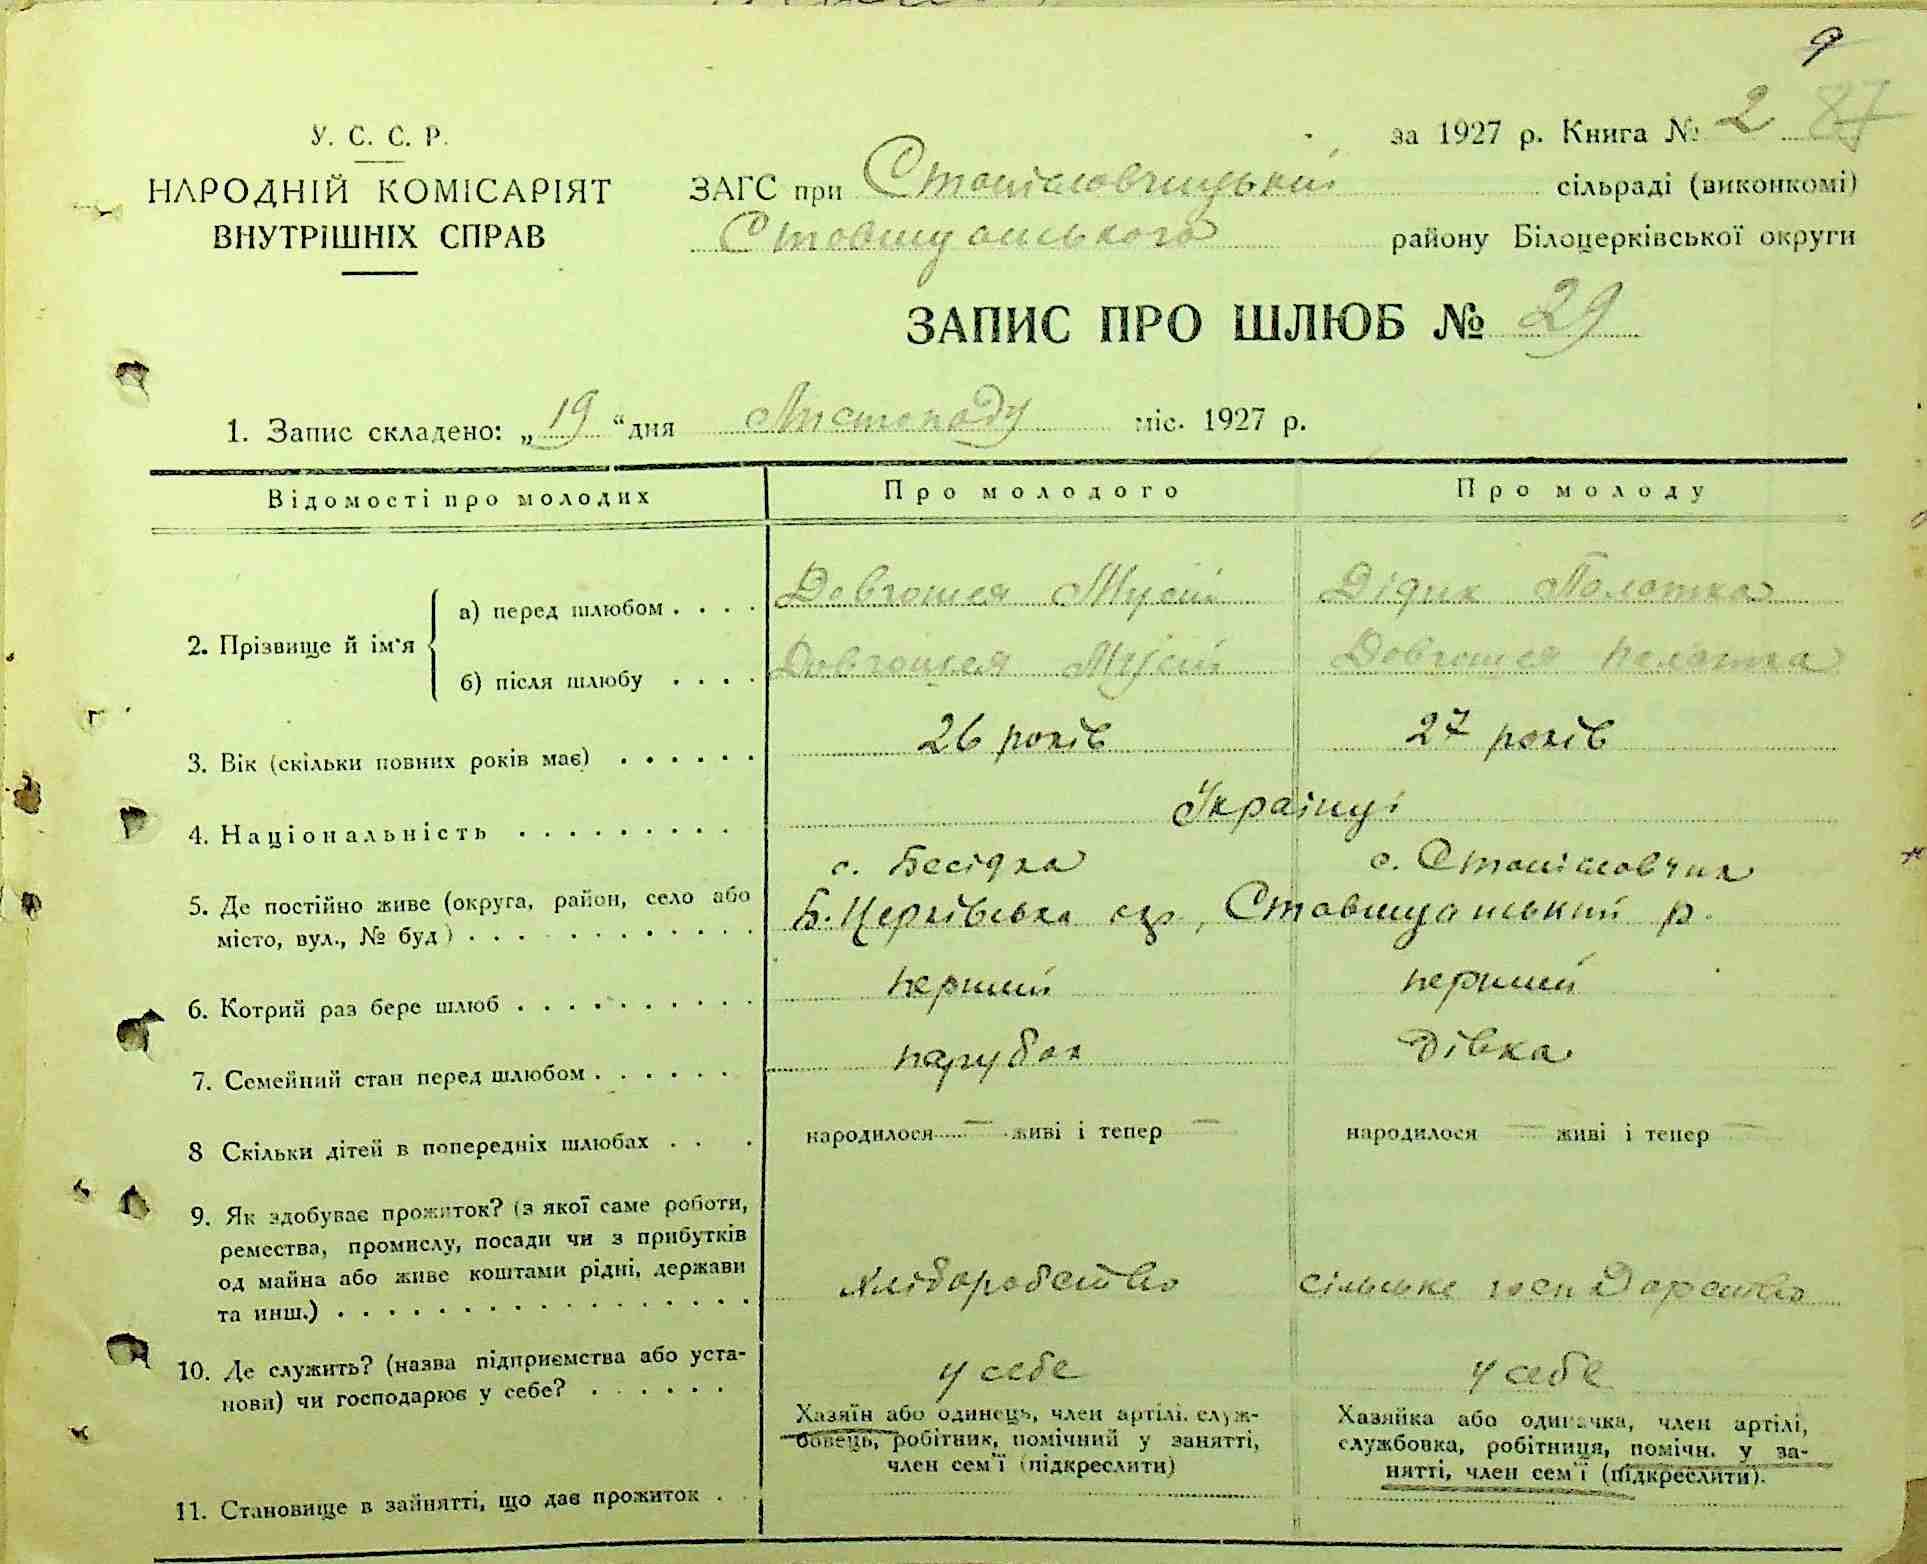 9
У. С. С. Р.
за 1927 р. Книга № 2 87
НАРОДНІЙ КОМІСАРІЯТ
ВНУТРІШНІХ СПРАВ
ЗАГС при Станіславчицький сільраді (виконкомі)
Ставищанського району Білоцерківської округи
ЗАПИС ПРО ШЛЮБ № 29
1. Запис складено: „19“ дня Листопаду міс. 1927 р.
Відомості про молодих Про молодого Про молоду
2. Прізвище й ім'я
а) перед шлюбом . . . . Довгошея Мусій Дідик Палажка
б) після шлюбу . . . . Довгошея Мусій Довгошея Палажка
3. Вік (скільки повних років має) . . . . . . 26 років 27 років
4. Національність . . . . . . . . . Українці
с. Бесідка с. Станіславчик
5. Де постійно живе (округа, район, село або
місто, вул., № буд) . . . . . . . . . . . . Б. Церківська окр, Ставищанський р.
6. Котрий раз бере шлюб . . . . . . . . . . перший перший
7. Семейний стан перед шлюбом . . . . . . парубок Дівка
8 Скільки дітей в попередніх шлюбах . . . народилося — живі і тепер — народилося — живі і тепер —
9. Як здобуває прожиток? (з якої саме роботи,
ремества, промислу, посади чи з прибутків
од майна або живе коштами рідні, держави
та инш.) . . . . . . . . . . . . . . . . Хліборобство сільське госпДарство
10. Де служить? (назва підприємства або уста-
нови) чи господарює у себе? . . . . . . у себе у себе
Хазяїн або одинець, член артілі, служ-
бовець, робітник, помічний у занятті,
член сем'ї (підкреслити)
Хазяйка або одиначка, член артілі,
службовка, робітниця, помічн. у за-
нятті, член сем'ї (підкреслити).
11. Становище в зайнятті, що дає прожиток . .